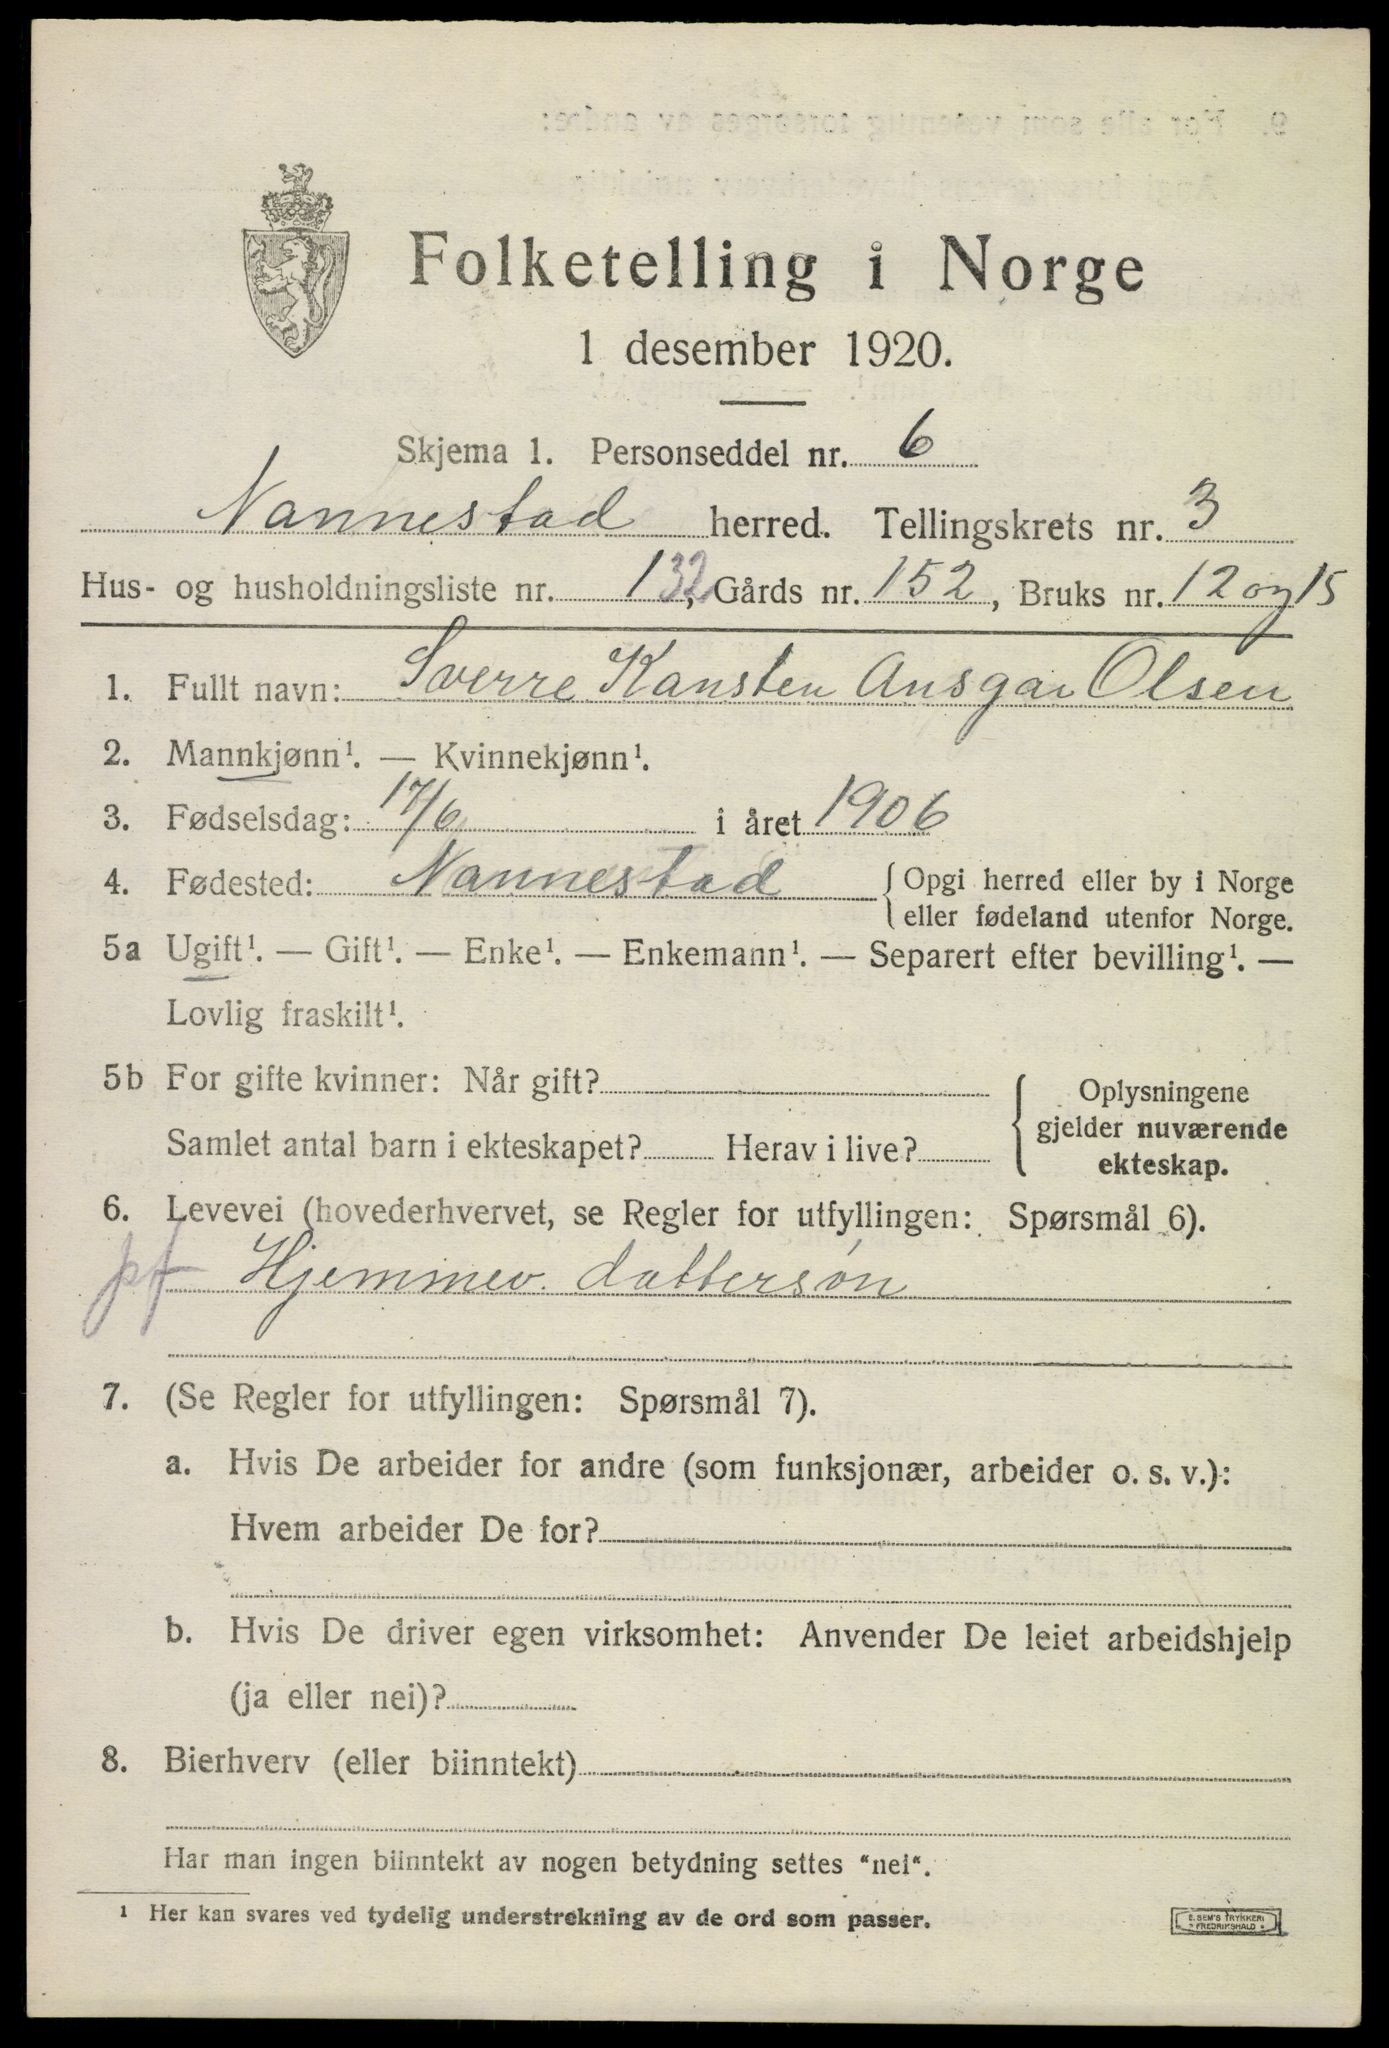 Folketelling i Norge
1 desember 1920.
Skjema 1. Personseddel nr. 6
Nannestad herred. Tellingskrets nr. 3
Hus- og husholdningsliste nr. 132, Gårds nr. 152, Bruks nr. 12 og 15
1. Fullt navn: Sverre Kansten Ansgar Olsen
2. Mannkjønn¹. — Kvinnekjønn¹.
3. Fødselsdag: 17/6 i året 1906
4. Fødested: Nannestad { Opgi herred eller by i Norge
eller fødeland utenfor Norge.
5a Ugift¹. — Gift¹. — Enke¹. — Enkemann¹. — Separert efter bevilling¹. —
Lovlig fraskilt¹.
5b For gifte kvinner: Når gift? { Oplysningene
gjelder nuværende
Samlet antal barn i ekteskapet? Herav i live?
ekteskap.
6. Levevei (hovederhvervet, se Regler for utfyllingen: Spørsmål 6).
pf Hjemmev. dattersøn
7. (Se Regler for utfyllingen: Spørsmål 7).
a. Hvis De arbeider for andre (som funksjonær, arbeider o. s. v.):
Hvem arbeider De for?
b. Hvis De driver egen virksomhet: Anvender De leiet arbeidshjelp
(ja eller nei)?
8. Bierhverv (eller biinntekt)
Har man ingen biinntekt av nogen betydning settes "nei".
¹ Her kan svares ved tydelig understrekning av de ord som passer.
E. SEM'S TRYKKERI
FREDRIKSHALD